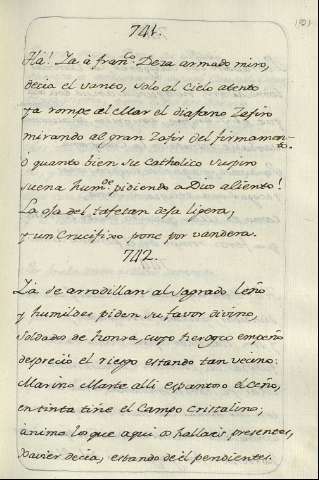 741.
Há! Ia à fran.co Deza armado miro,
decia el santo, solo al Cielo atento
ya rompe el Mar el diafano Zefiro
mirando al gran Zafir del firmamen-
to.
ò quanto bien su Catholico suspiro
suena hum.de pidiendo a Dios aliento!
La del tafetan dexa ligera,
y un Crucifixo pone por vandera.
742.
Ia se arrodillan al sagrado leño
y humildes piden su favor divino,
soldados de honra, cuyo heroyco empeño
despreciò el riesgo estando tan vecino:
Marino Marte alli espantoso el ceño,
en tinta tiñe el Campo Cristalino;
animo los que aqui os hallais presentes,
Xavier decia, estando de èl pendientes.